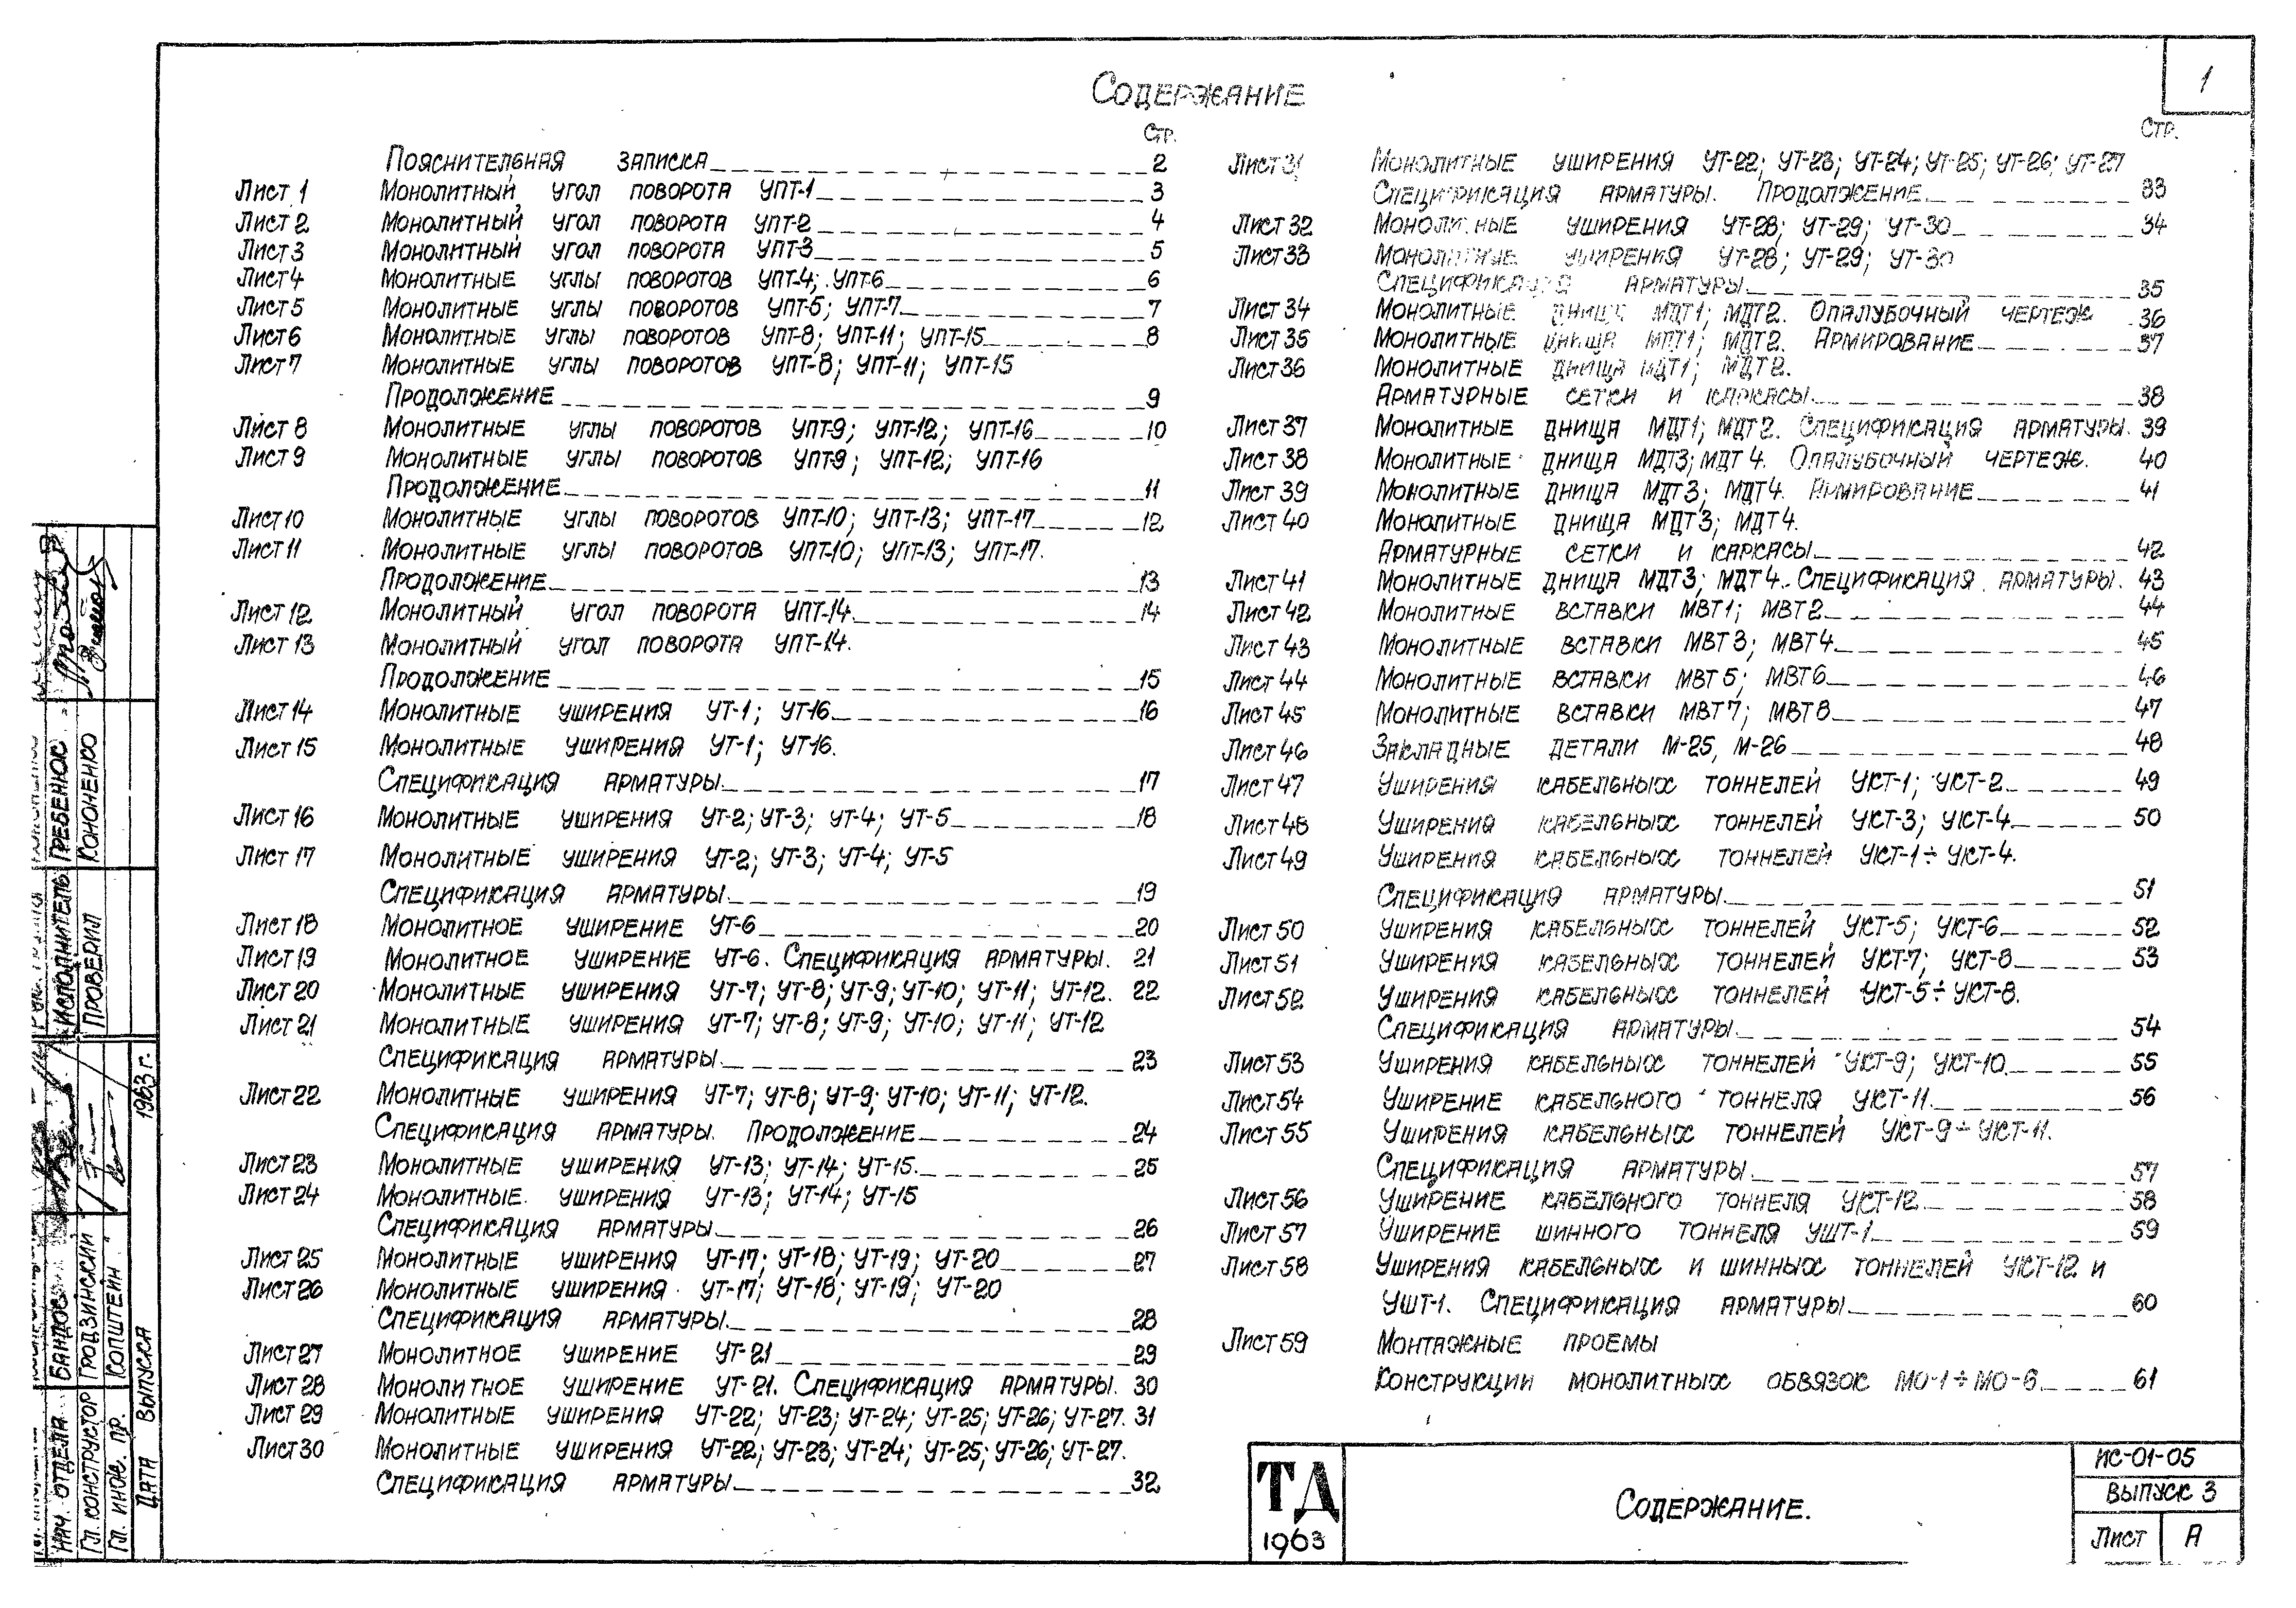 1
Содержание
Стр.
Пояснительная записка 2
Лист 1 Монолитный угол поворота УПТ-1 3
Лист 2 Монолитный угол поворота УПТ-2 4
Лист 3 Монолитный угол поворота УПТ-3 5
Лист 4 Монолитные углы поворотов УПТ-4; УПТ-6 6
Лист 5 Монолитные углы поворотов УПТ-5; УПТ-7 7
Лист 6 Монолитные углы поворотов УПТ-8; УПТ-11; УПТ-15 8
Лист 7 Монолитные углы поворотов УПТ-8; УПТ-11; УПТ-15
Продолжение 9
Лист 8 Монолитные углы поворотов УПТ-9; УПТ-12; УПТ-16 10
Лист 9 Монолитные углы поворотов УПТ-9; УПТ-12; УПТ-16
Продолжение 11
Лист 10 Монолитные углы поворотов УПТ-10; УПТ-13; УПТ-17 12
Лист 11 Монолитные углы поворотов УПТ-10; УПТ-13; УПТ-17.
Продолжение 13
Лист 12 Монолитный угол поворота УПТ-14 14
Лист 13 Монолитный угол поворота УПТ-14.
Продолжение 15
Лист 14 Монолитные уширения УТ-1; УТ-16 16
Лист 15 Монолитные уширения УТ-1; УТ-16.
Спецификация арматуры 17
Лист 16 Монолитные уширения УТ-2; УТ-3; УТ-4; УТ-5 18
Лист 17 Монолитные уширения УТ-2; УТ-3; УТ-4; УТ-5
Спецификация арматуры 19
Лист 18 Монолитное уширение УТ-6 20
Лист 19 Монолитное уширение УТ-6. Спецификация арматуры. 21
Лист 20 Монолитные уширения УТ-7; УТ-8; УТ-9; УТ-10; УТ-11; УТ-12. 22
Лист 21 Монолитные уширения УТ-7; УТ-8; УТ-9; УТ-10; УТ-11; УТ-12
Спецификация арматуры 23
Лист 22 Монолитные уширения УТ-7; УТ-8; УТ-9; УТ-10; УТ-11; УТ-12.
Спецификация арматуры. Продолжение 24
Лист 23 Монолитные уширения УТ-13; УТ-14; УТ-15. 25
Лист 24 Монолитные уширения УТ-13; УТ-14; УТ-15
Спецификация арматуры 26
Лист 25 Монолитные уширения УТ-17; УТ-18; УТ-19; УТ-20 27
Лист 26 Монолитные уширения УТ-17; УТ-18; УТ-19; УТ-20
Спецификация арматуры 28
Лист 27 Монолитное уширение УТ-21 29
Лист 28 Монолитное уширение УТ-21. Спецификация арматуры. 30
Лист 29 Монолитные уширения УТ-22; УТ-23; УТ-24; УТ-25; УТ-26; УТ-27. 31
Лист 30 Монолитные уширения УТ-22; УТ-23; УТ-24; УТ-25; УТ-26; УТ-27.
Спецификация арматуры 32
Стр.
Лист 31 Монолитные уширения УТ-22; УТ-23; УТ-24; УТ-25; УТ-26; УТ-27
Спецификация арматуры. Продолжение 33
Лист 32 Монолитные уширения УТ-28; УТ-29; УТ-30 34
Лист 33 Монолитные уширения УТ-28; УТ-29; УТ-30
Спецификация арматуры 35
Лист 34 Монолитные днища МДТ1; МДТ2. Опалубочный чертеж 36
Лист 35 Монолитные днища МДТ1; МДТ2. Армирование 37
Лист 36 Монолитные днища МДТ1; МДТ2.
Арматурные сетки и каркасы 38
Лист 37 Монолитные днища МДТ1; МДТ2. Спецификация арматуры. 39
Лист 38 Монолитные днища МДТ3; МДТ4. Опалубочный чертеж. 40
Лист 39 Монолитные днища МДТ3; МДТ4. Армирование 41
Лист 40 Монолитные днища МДТ3; МДТ4.
Арматурные сетки и каркасы 42
Лист 41 Монолитные днища МДТ3; МДТ4. Спецификация арматуры. 43
Лист 42 Монолитные вставки МВТ1; МВТ2 44
Лист 43 Монолитные вставки МВТ3; МВТ4 45
Лист 44 Монолитные вставки МВТ5; МВТ6 46
Лист 45 Монолитные вставки МВТ7; МВТ8 47
Лист 46 Закладные детали М-25, М-26 48
Лист 47 Уширения кабельных тоннелей УКТ-1; УКТ-2 49
Лист 48 Уширения кабельных тоннелей УКТ-3; УКТ-4 50
Лист 49 Уширения кабельных тоннелей УКТ-1÷УКТ-4.
Спецификация арматуры 51
Лист 50 Уширения кабельных тоннелей УКТ-5; УКТ-6 52
Лист 51 Уширения кабельных тоннелей УКТ-7; УКТ-8 53
Лист 52 Уширения кабельных тоннелей УКТ-5÷УКТ-8.
Спецификация арматуры 54
Лист 53 Уширения кабельных тоннелей УКТ-9; УКТ-10 55
Лист 54 Уширение кабельного тоннеля УКТ-11. 56
Лист 55 Уширения кабельных тоннелей УКТ-9÷УКТ-11.
Спецификация арматуры 57
Лист 56 Уширение кабельного тоннеля УКТ-12 58
Лист 57 Уширение шинного тоннеля УШТ-1 59
Лист 58 Уширения кабельных и шинных тоннелей УКТ-12 и
УШТ-1. Спецификация арматуры 60
Лист 59 Монтажные проемы
Конструкции монолитных обвязок МО-1÷МО-6 61
ТД
1963
Содержание.
ИС-01-05
Выпуск 3
Лист А
Исполнитель Гребенюк
Проверил Кононенко
Нач. отдела Бандос
Гл. конструктор Гродзинский
Гл. инж. пр. Копштейн
Дата выпуска 1963 г.